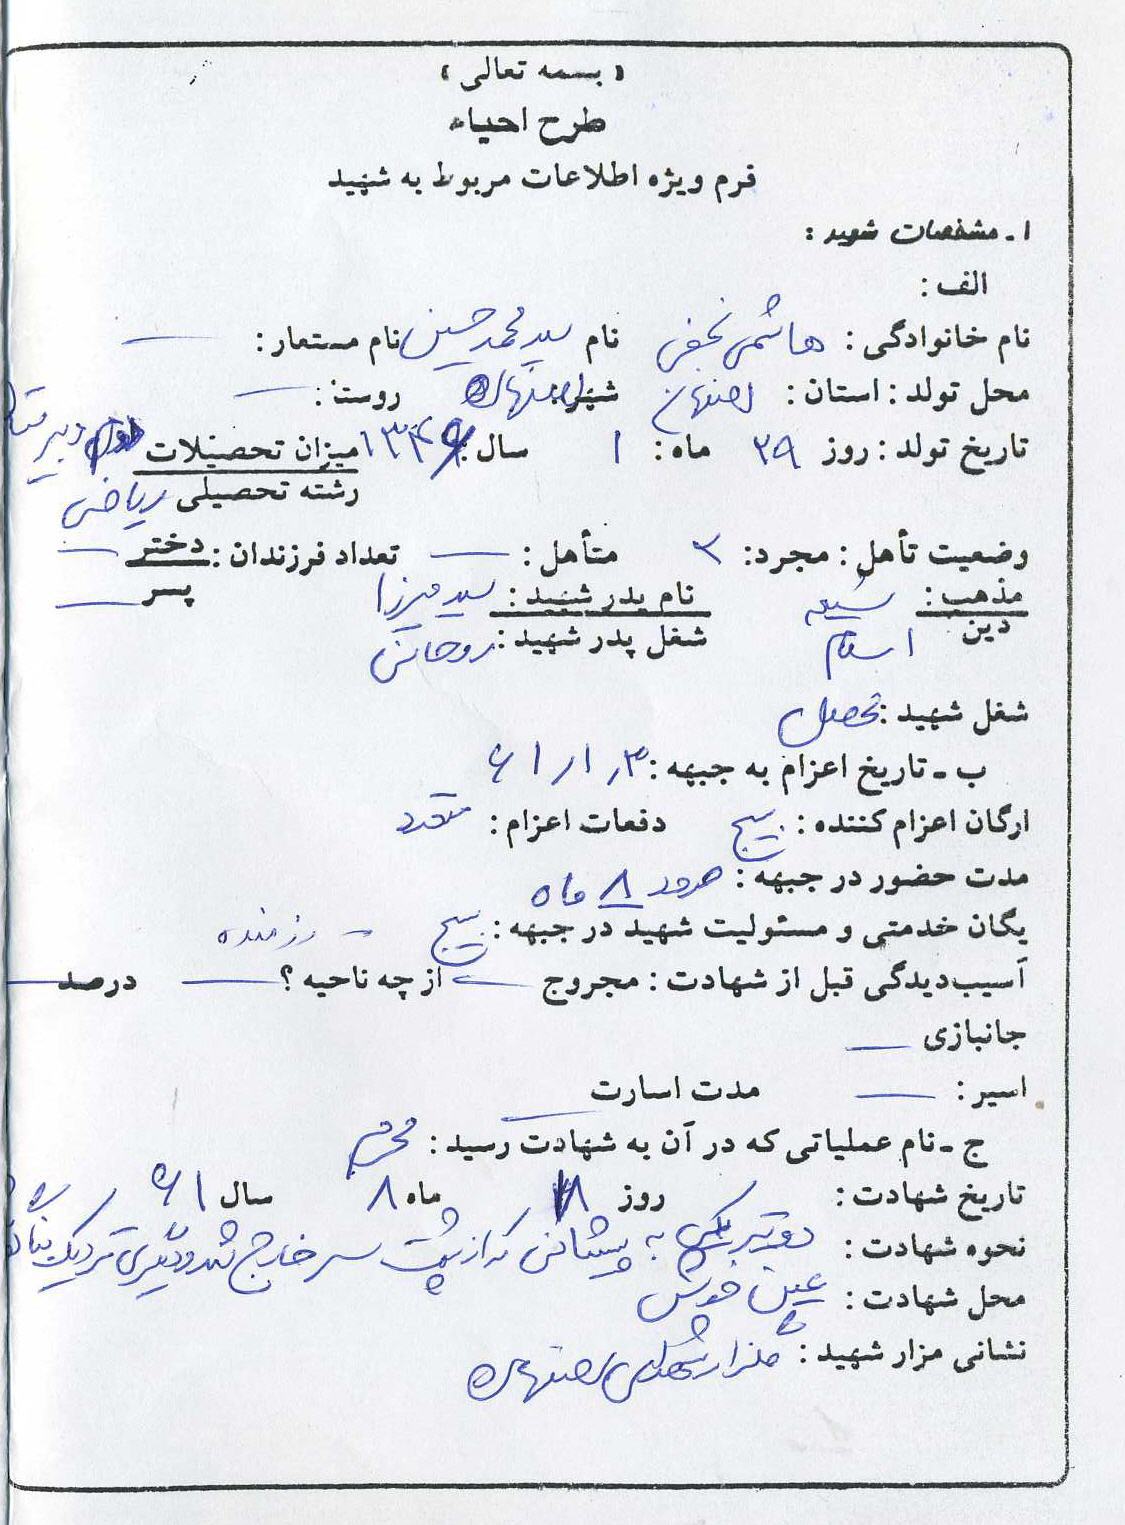 « بسمه تعالی »
طرح احیاء
فرم ویژه اطلاعات مربوط به شهید
۱ـ مشخصات شهید :
الف :
نام خانوادگی : هاشمی نجفی نام سید محمد حسین نام مستعار : ـــ
محل تولد : استان : اصفهان شهر: اصفهان روستا : ـــ
تاریخ تولد : روز ۲۹ ماه : ۱ سال : ۱۳۴۶ میزان تحصیلات دبیرستان
رشته تحصیلی ریاضی
وضعیت تأهل : مجرد: متأهل : ـــ تعداد فرزندان : دختر ـــ
پسر ـــ
مذهب : شیعه نام پدر شهید : سید میرزا
دین اسلام شغل پدر شهید : روحانی
شغل شهید : محصل
ب ـ تاریخ اعزام به جبهه : ۶۱/۱/۳
ارگان اعزام کننده : بسیج دفعات اعزام : متعدد
مدت حضور در جبهه : حدود ۸ ماه
یگان خدمتی و مسئولیت شهید در جبهه : بسیج - رزمنده
آسیب‌دیدگی قبل از شهادت : مجروح ـــ از چه ناحیه ؟ ـــ درصد ـــ
جانبازی ـــ
اسیر : ـــ مدت اسارت ـــ
ج ـ نام عملیاتی که در آن به شهادت رسید : محرم
تاریخ شهادت : روز ماه ۸ سال ۶۱
نحوه شهادت : دو تیر یکی به پیشانی که از پشت سر خارج شد و دیگری نزدیک
محل شهادت : عین خوش
نشانی مزار شهید : گلزار شهدای اصفهان